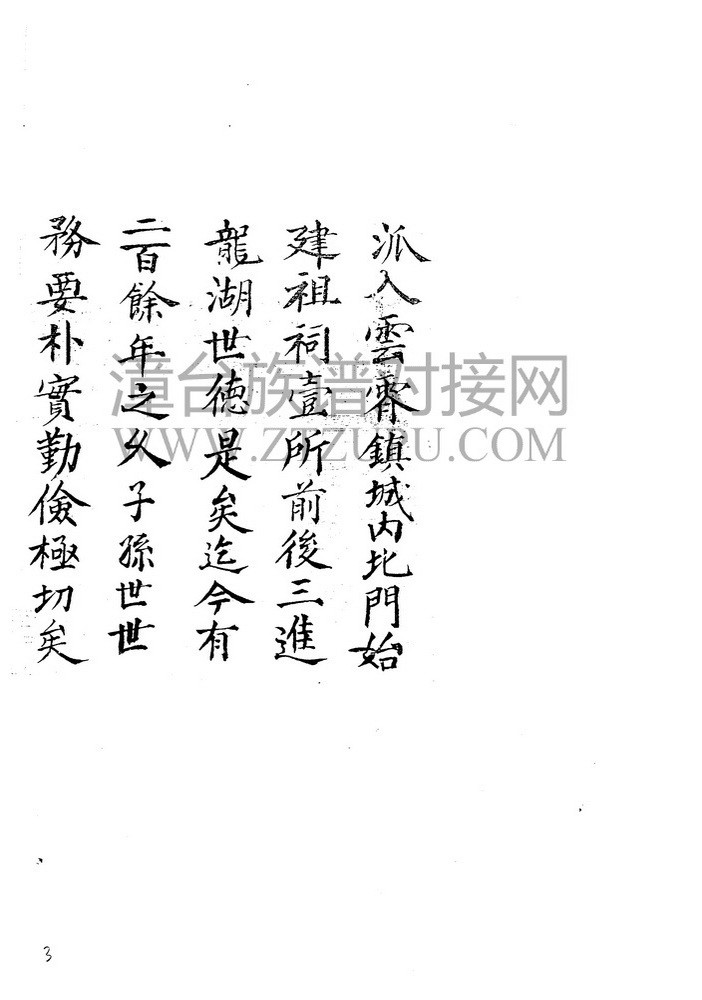 派入雲霄鎮城內北門始
建祖祠壹所前後三進
龍湖世德是矣迄今有
二百餘年之久子孫世世
務要朴實勤儉極切矣
漳台族谱对接网
WWW.ZTZUPU.COM
3